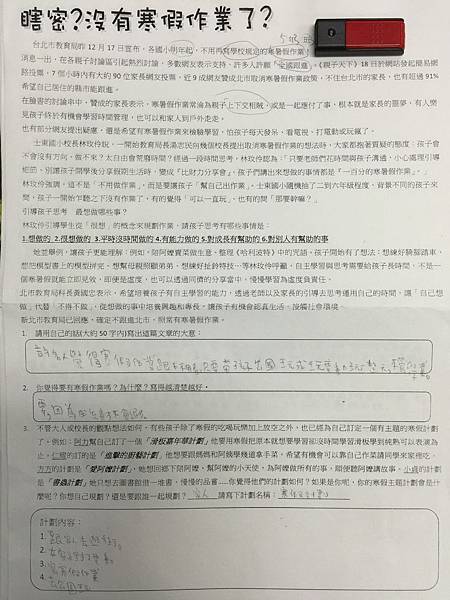 瞎密?沒有寒假作業了?
台北市教育局昨 12 月 17 日宣布，各國小明年起，不用再寫學校規定的寒暑假作業！
消息一出，在各親子討論區引起熱烈討論，多數網友表示支持，許多人許願「全國跟進」。《親子天下》18 日於網站發起簡易網
路投票，7 個小時內有大約 90 位家長網友投票，近 9 成網友贊成北市取消寒暑假作業政策，不住台北市的家長，也有超過 91%
希望自己居住的縣市能跟進。
在臉書的討論串中，贊成的家長表示，寒暑假作業常淪為親子上下交相賊，或是一起應付了事，根本就是家長的噩夢，有人樂
見孩子終於有機會學習時間管理，也可以和家人到戶外走走。
也有部分網友提出疑慮，還是希望有寒暑假作業來檢驗學習，怕孩子每天發呆、看電視，打電動或玩瘋了。
士東國小校長林玫伶說，一開始教育局長湯志民約幾個校長提出取消寒暑假作業的想法時，大家都抱著質疑的態度：孩子會
不會沒有方向，做不來？太自由會荒廢時間？經過一段時間思考，林玫伶認為：「只要老師們花時間與孩子溝通，小心處理引導
細節，別讓孩子開學後分享假期生活時，變成「比財力分享會」，孩子們講出來想做的事情都是「一百分的寒暑假作業」。」
林玫伶強調，這不是「不用做作業」，而是要讓孩子「幫自己出作業」。士東國小隨機抽了二到六年級程度、背景不同的孩子來
問，孩子一開始乍聽之下沒有作業了，有的覺得「可以一直玩」，也有的問「那要幹嘛？」
引導孩子思考　最想做哪些事？
林玫伶引導學生從「很想」的概念來規劃作業，請孩子思考有哪些事情是：
1.想做的 2.很想做的 3.平時沒時間做的 4.有能力做的 5.對成長有幫助的 6.對別人有幫助的事
她並舉例，讓孩子更能理解：例如，陪阿嬤賣菜做生意、整理《哈利波特》中的咒語，孩子開始有了想法：想練好騎腳踏車、
想把模型書上的模型拼完、想幫爸親照顧弟弟、想練好扯鈴特技…等林玫伶呼籲，自主學習與思考需要給孩子長時間，不是一
個寒暑假就能立即見效，即便是虛度，也可以透過同儕的分享當中，慢慢學習為虛度負責任。
北市教育局科長黃國忠表示，希望培養孩子有自主學習的能力，透過老師以及家長的引導去思考運用自己的時間，讓「自己想
做」代替「不得不做」，從想做的事中培養興趣和專長，讓孩子有機會認真生活、接觸社會環境。
新北市教育局已回應，確定不跟進北市，照常有寒暑假作業。
1. 請用自己的話(大約 50 字內)寫出這篇文章的大意：
2. 你覺得要有寒假作業嗎？為什麼？寫得越清楚越好。
3. 不管大人或校長的觀點想法如何，有些孩子除了寒假的吃喝玩樂加上放空之外，也已經為自己訂定一個有主題的寒假計劃
了。例如：阿力幫自己訂了一個「滑板嘉年華計劃」他要用寒假把原本就想要學習卻沒時間學習滑板學到純熟可以表演為
止。仁橙的訂的是「進擊的廚藝計劃」，他想要跟媽媽和阿姨學幾道拿手菜，希望有機會可以靠自己作菜請同學來家裡吃。
方方的計劃是「愛阿嬤計劃」，她想回鄉下陪阿嬤，幫阿嬤的小天使，為阿嬤做所有的事，順便聽阿嬤講故事。小崴的計劃
是「書蟲計劃」她只想去圖書館借一堆書，慢慢的品書…..你覺得他們的計劃如何？如果是你呢，你的寒假主題計劃會是什
麼呢？你想自己規劃？還是要跟誰一起規劃？ 家人 請寫下計劃名稱：
計劃內容：
1.
2.
3. 寫寒假作業
4.